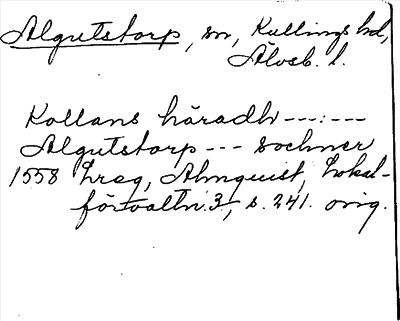 Algutstorp, sn, Kullings hd,
Älvsb. l.
Kollans häradh ---:---
Algutstorp --- sochner
1558 hreg, Almquist, Lokal-
förvaltn. 3, s. 241. orig.